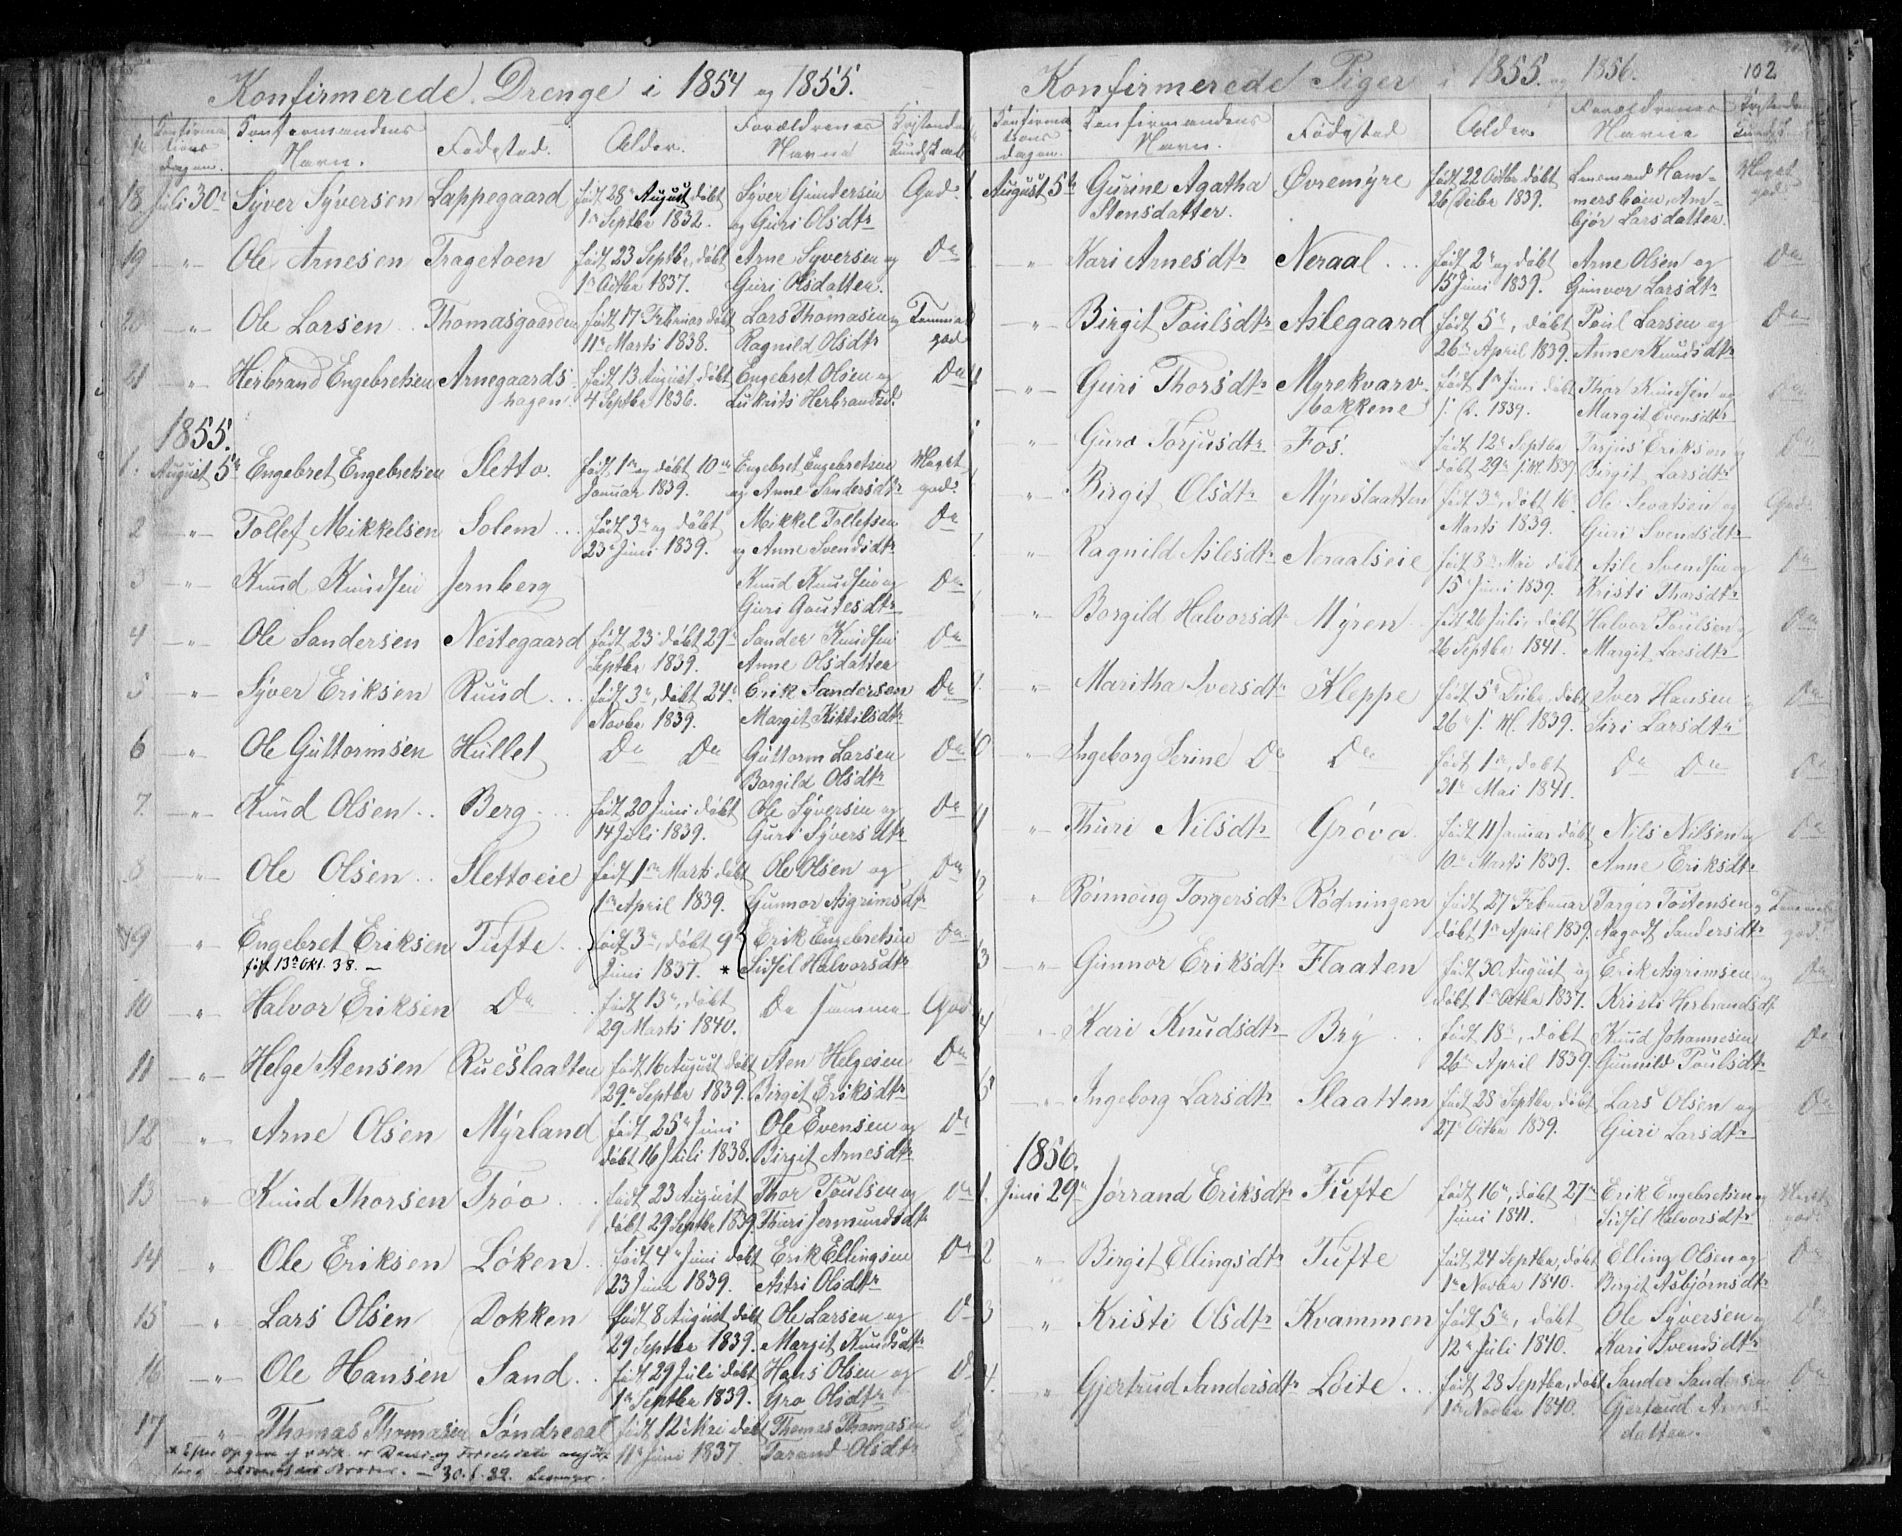 Konfirmerede Drenge i 1854 og 1855.
Konfirma tions dagen. Konfirmandens Navn. Fødested. Alder. Forældrenes Navne Kristendoms Kundskab
18 Juli 30te Syver Syversen Lappegaard født 28de August døbt Syver Gundersen God.
1te Septbr 1832. og Guri Olsdtr
19 " Ole Arnesen Tragetoen født 23 Septbr, døbt Arne Syversen og Do
1te Octbr 1837. Guri Olsdatter.
20 " Ole Larsen Thomasgaarden født 17 Februar døbt Lars Thomasen og Temmel
11te Marts 1838. Ragnild Olsdtr god
21 " Herbrand Engebretsen Arnegaards født 13 August døbt Engebret Olsen og Do
hagen. 4 Septbr 1836. Herbrandsd.
1855.
1. August 5te Engebret Engebretsen Sletto. født 1te og døbt 10de Engebret Engebretsen Meget
Januar 1839. og Anne Sandersdtr god.
2 " Tollef Mikkelsen Solem født 3de og døbt Mikkel Tollefsen Do
23de Juni 1839. og Anne Svendsdtr
3 " Knud Knudsen Jernberg Knud Knudsen og Do
Guri Goutesdtr
4 " Ole Sandersen Nestegaard født 23 døbt 29de Sander Knudsen Do
Septbr 1839. Anne Olsdatter
5 " Syver Eriksen Ruud født 3de, døbt 24de Erik Sandersen Do
Novbr 1839. Margit Kittilsdtr
6 " Ole Guttormsen Hullet Do Do Guttorm Larsen Do
Borgild Olsdtr
7. " Knud Olsen Berg født 20 Juni døbt Ole Syversen og Do
14 Juli 1839. Guri Syversdtr
8 " Ole Olsen Slettoeie født 1te Marts døbt Ole Olsen og Do
1te April 1839. Gunnor Asgrimsdtr
9 " Engebret Eriksen Tufte født 3de, døbt 9de Erik Engebretsen Do
født 13de Okt. 38. Juni 1837. * Sidsel Halvorsdtr
10 " Halvor Eriksen Do født 13de, døbt De samme God
29 Marts 1840.
11 " Helge Stensen Rueslaatten født 16 August døbt Sten Helgesen Do
29de Septbr 1839. Birgit Eriksdtr
12 " Arne Olsen Myrland født 25de Juni Ole Evensen og Do
døbt 16 Juli 1838. Birgit Arnesdtr
13 " Knud Thorsen Trøo født 23 August Thor Poulsen og Do
døbt 29 Septbr 1839. Thuri Jermundsdtr
14 " Ole Eriksen Løken født 4de Juni døbt Erik Ellingsen Do
23 Juni 1839. Astri Olsdtr
15 " Lars Olsen Dokken født 8 August døbt Ole Larsen og Do
29 Septbr 1839. Margit Knudsdtr
16 " Ole Hansen Sand født 29 Juli døbt Hans Olsen og D
1te Septbr 1839. Gro Olsdtr
17 " Thomas Thomasen Søndreaal født 12 Mai døbt Thomas Thomasen
11te Juni 1837 Tarand Olsdtr
Konfirmerede Piger i 1855 og 1856. 102
Konfirma tions dagen. Konfirmandens Navn. Fødested Alder Forældrenes Navne Kristendoms Kundskab
August 5te Gurine Agatha Øvremyre født 22 Octbr døbt Lensmand Ham- Meget
Stensdatter. 26 Decbr 1839. mersbøen, Am- god.
bjør Larsdatter.
" Kari Arnesdtr Neraal født 2de og døbt Arne Olsen og Do
15 Juni 1839. Gunvor Larsdtr
" Birgit Poulsdtr Aslegaard født 5te, døbt Poul Larsen og Do
26de April 1839. Anne Knudsdtr
4 " Guri Thorsdtr Myrekvarv født 1te Juni døbt Thor Knudsen og Do
bakkene 1839. Margit Evensdtr
" Guro Torjusdtr Fos. født 12te Septbr Torjus Eriksen og Do
døbt 29de s. M. 1839 Birgit Larsdtr
" Birgit Olsdtr Myreslaatten født 3de, døbt 16de Ole Sevatsen og God.
Marts 1839. Guri Svendsdtr
" Ragnild Aslesdtr Neraalseie født 8de Mai døbt Asle Svendsen og Do
15de Juni 1839. Kristi Thorsdtr
" Borgild Halvorsdtr Myren født 26 Juli døbt Halvor Poulsen og Do
26 Septbr 1841. Margit Larsdtr
9. " Maritha Iversdtr Kleppe født 5te Decbr, døbt Iver Hansen og Do
26de s. M. 1839. Siri Larsdtr
10 " Ingeborg Serine Do Do født 1te, døbt Do Do Do
31te Mai 1841.
" Thuri Nilsdtr Grøva født 11 Januar døbt Nils Nilsen og Do
10de Marts 1839. Anne Eriksdtr
2 " Rønnoug Torgersdtr Rødningen født 27 Februar Torger Tostensen og Temmel
døbt 1te April 1839. Aagodt Sandersdtr god.
3 " Gunnor Eriksdtr Flaaten født 30 August og Erik Asgrimsen og Do
døbt 1te Octbr 1837. Kristi Herbrandsdtr
4 " Kari Knudsdtr Bry født 18de, døbt Knud Johannesen Do
26de April 1839. Gunnild Poulsdtr
5 " Ingeborg Larsdtr Slaatten født 28 Septbr døbt Lars Olsen og Do
27 Octbr 1839. Guri Larsdtr
1856.
1. Juni 29de Jørrand Eriksdtr Tufte født 16de, døbt 27de Erik Engebretsen og Meget
Juni 1841. Sidsel Halvorsdtr god.
2 " Birgit Ellingsdtr Tufte født 24 Septbr, døbt Elling Olsen og Do
1te Novbr 1840. Birgit Asbjørnsdtr
3 " Kristi Olsdtr Kvammen født 5te, døbt Ole Syversen og Do
12te Juli 1840. Kari Svendsdtr
4. " Gjertrud Sandersdtr Løite født 28 Septbr, døbt Sander Sandersen Do
1te Novbr 1840. Gjertrud Arnes-
datter.